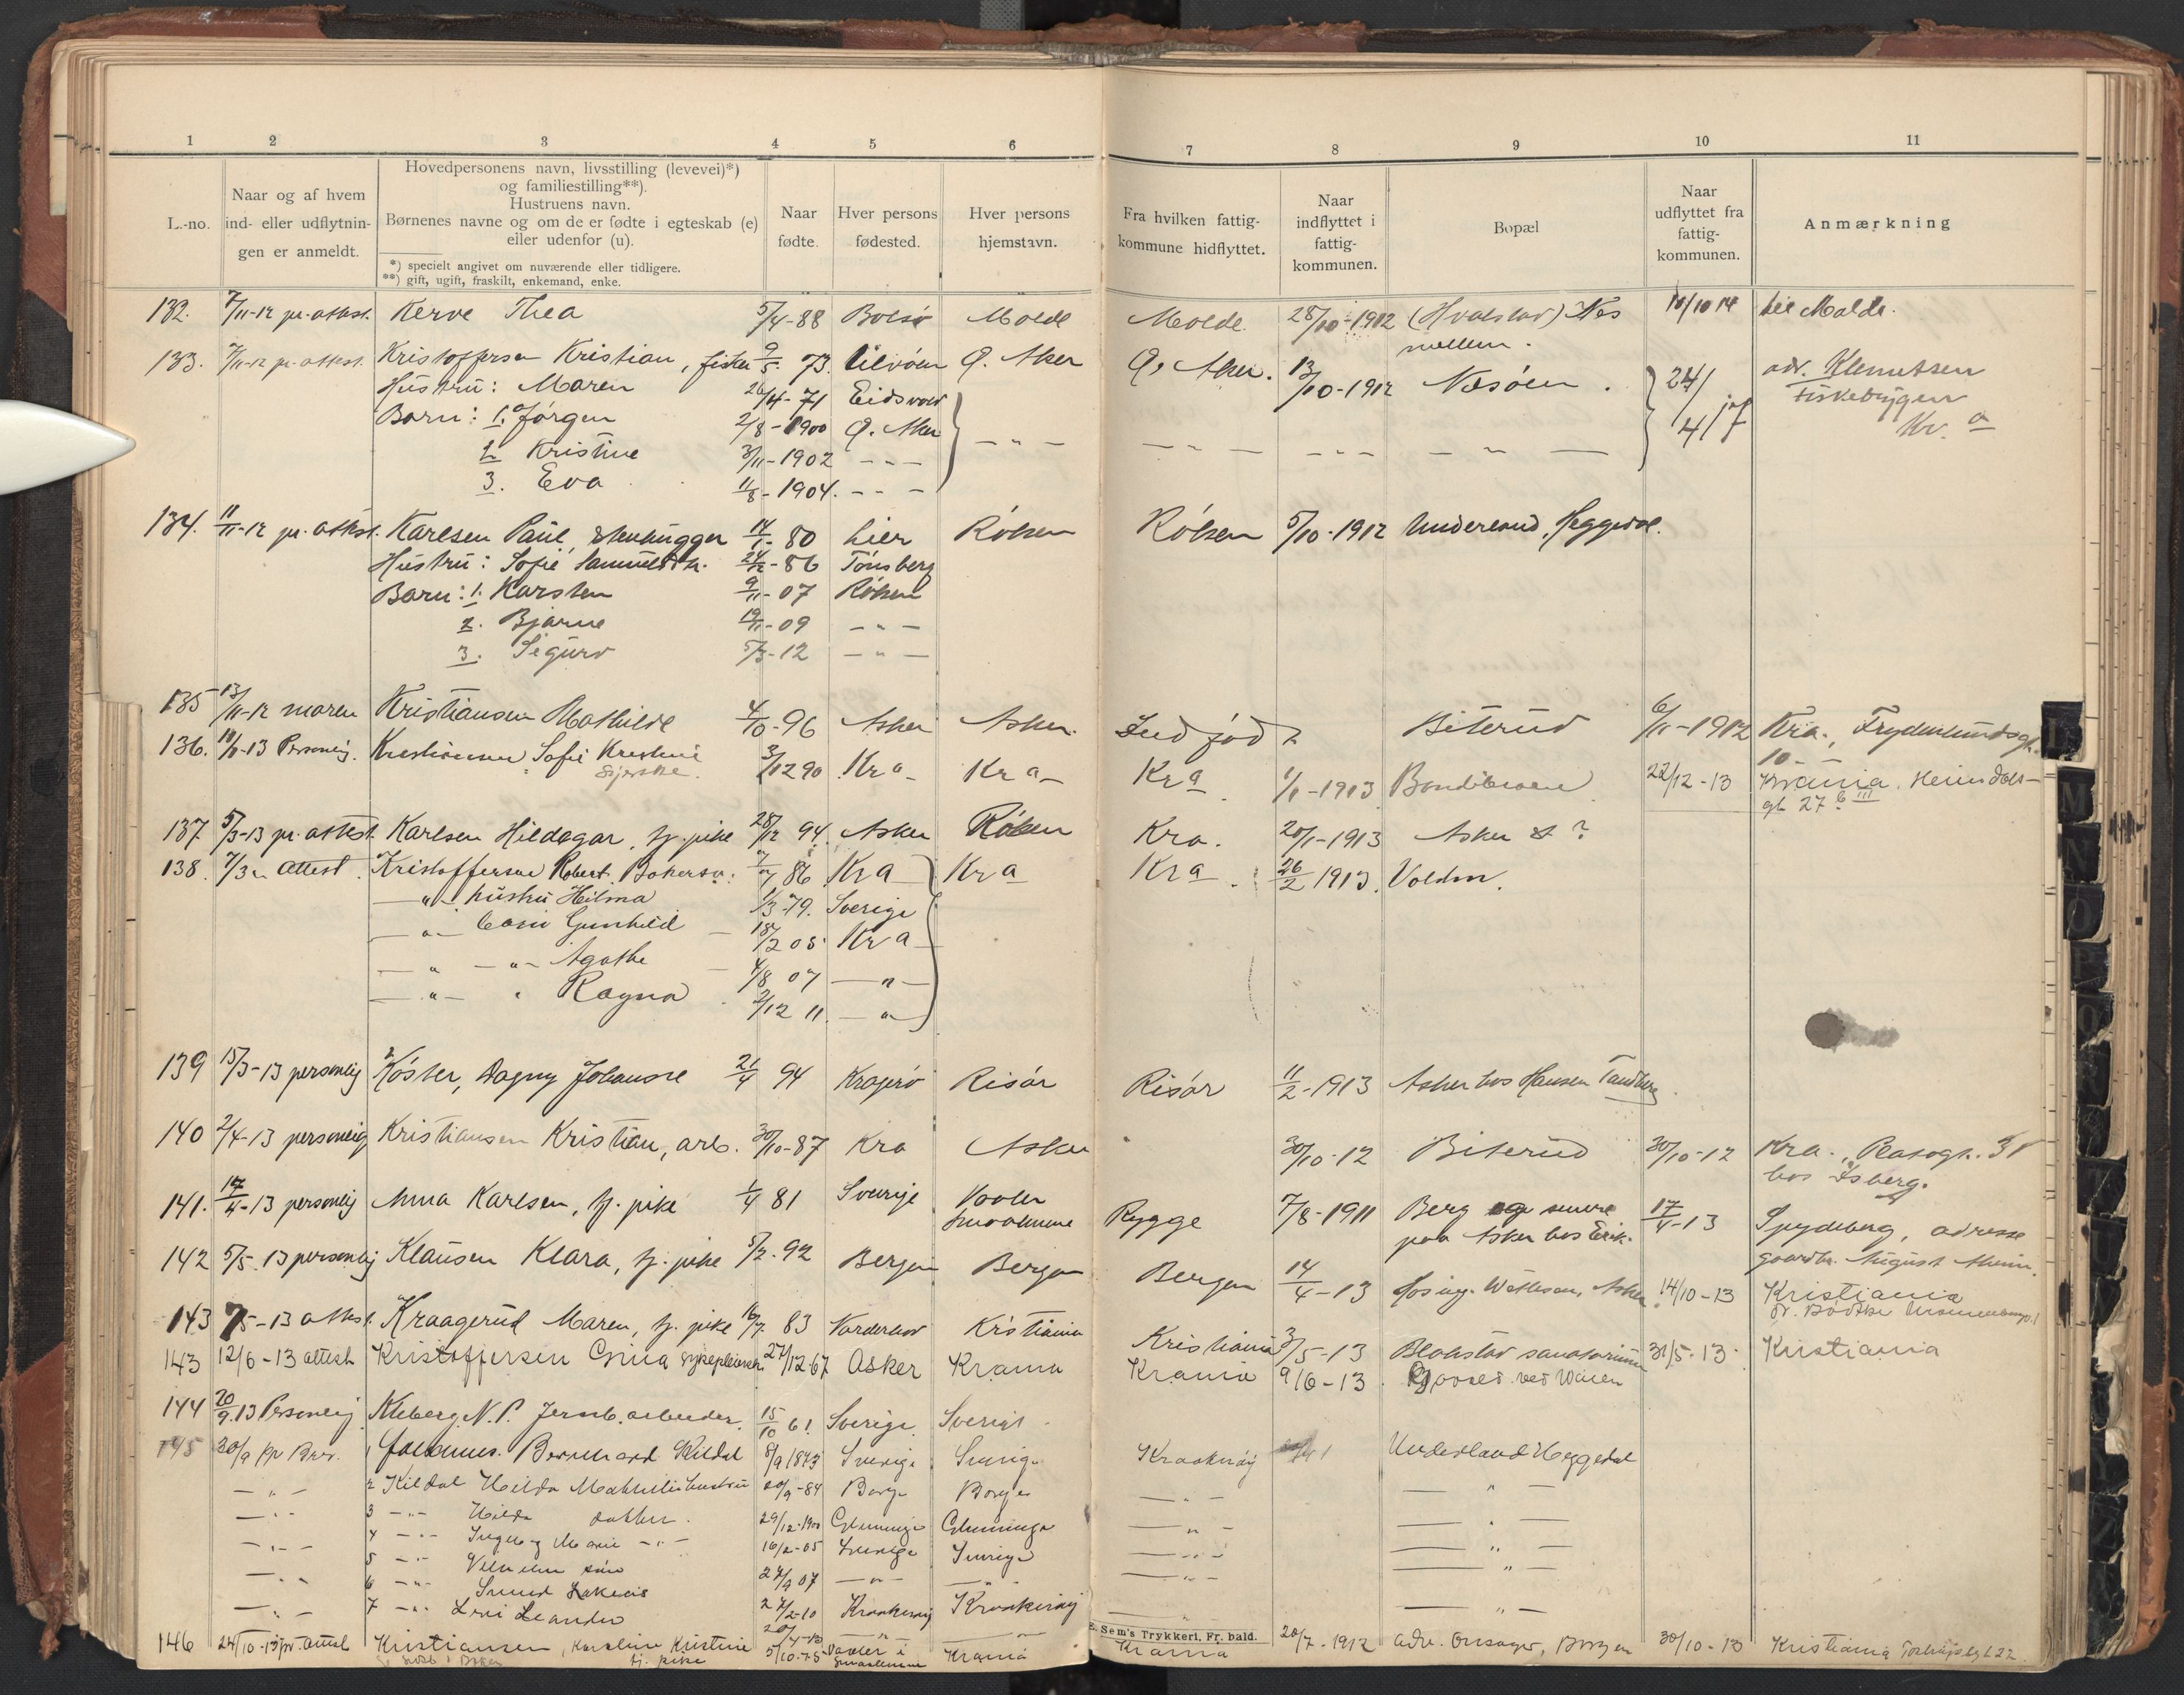 1 2 3 4 5 6 7 8 9 10 11
L.-no.
Naar og af hvem
ind- eller udflytnin-
gen er anmeldt.
Hovedpersonens navn, livsstilling (levevei)*)
og familiestilling**).
Hustruens navn.
Børnenes navne og om de er fødte i egteskab (e)
eller udenfor (u).
*) specielt angivet om nuværende eller tidligere.
**) gift, ugift, fraskilt, enkemand, enke.
Naar
fødte.
Hver persons
fødested.
Hver persons
hjemstavn.
Fra hvilken fattig-
kommune hidflyttet.
Naar
indflyttet i
fattig-
kommunen.
Bopæl
Naar
udflyttet fra
fattig-
kommunen.
Anmærkning
132. 7/11-12 pr. attest. Kerve Thea 5/4-88 Bolsø Molde Molde 28/10-1912 (Hvalstad) Nes 10/10 14 til Molde.
mellem.
133. 7/11-12 pr. attest. Kristoffersen Kristian, fisker 9/5. 73. Ø. Aker Ø. Aker. 13/10-1912 Nesøen. 24/4 17 adr. Klemetsen
Hustru: Maren 26/4-71 Eidsvold Fiskebryggen
Barn: 1. Jørgen 2/8-1900 Ø. Aker - " - Kr. a
2 Kristine 3/11-1902 - " -
3. Eva 11/8-1904. - " -
134. 11/11-12 pr. attest. Karlsen Paul, stenhugger 14/1-80 Lier Røken Røken 5/10-1912 Underland, Heggedal.
Hustru: Sofie Samuelsdtr. 24/12-86 Tønsberg
Barn: 1. Karsten 9/11-07 Røken
2. Bjarne 19/1-09 - " -
3. Sigurd 5/3-12 - " -
135 13/11-12 moren Kristiansen Mathilde 4/10-96 Asker Asker. Indfødt Biterud 6/11-1912 Kra., Frydenlundsgt.
10
136. 10/1-13 Personlig. Kristiansen Sofie Kristine 3/12 90 Kra Kra Kra 1/1-1913 22/12-13 Krania. Heimdals-
gt 27 b III
137 5/3-13 pr. attest Karlsen Hildegar, tj. pike 28/12 94. Asker Røken Kra. 20/1-1913 Asker st ?
138. 7/3 " attest. Kristoffersen Robert. 7/7 86 Kra Kra Kra 26/2 1913. Volden.
- " - hustru Hilma 1/3-79. Sverige
- " - barn Gunhild 18/2 05 Kra
- " - " - Agathe 4/8 07 - " -
- " - " Ragna 2/12 11. - " -
139 15/3-13 personlig Köster, Dagny Johanne 21/4 94 Kragerø Risør Risør 11/2-1913 Asker hos Hansen Tandberg
140 2/4-13 personlig Kristiansen Kristian, arb. 30/10-87 Kra Asker 30/10-12 Biterud 30/10-12 Kra.
hos Isberg.
141. 17/4-13 personlig Anna Karlsen, tj. pike 1/4 81 Sverige Vaaler Rygge 7/8-1911 Berg og senere 17/4-13 Spydeberg, adresse
Smaalenene paa Asker hos Erik. gaardbr. August
142 5/5-13 personlig Klausen Klara, tj. pike 5/2-92 Bergen Bergen Bergen 14/4-13 Hos ing. Asker. 14/10-13 Kristiania
143 7/5-13 attest. Kraagerud Maren, tj. pike 16/7 83 Vardal Kristiania Kristiania 3/5-13 Blakstad sanatorium 31/5-13 Kristiania
143 12/6-13 attest Kristoffersen Gina sykepleierske 27/12-67 Asker Krania Krania 9/6-13 ved Vøien
144 20/9.13 Personlig Kleberg N. P. Jernb. arbeider 15/10 61 Sverige Sverige
145 30/9 1 Johannes Bernhard Kildal 8/9 1843 Sverige Sverige Kraakerøy Underland Heggedal
- " - 2 Kildal Hilda hustru 20/9-84 Borge Borge - " - - " -
- " - 3 - " - Hilda datter. 29/12-1900 Glemminge Glemminge - " - - " -
- " - 4 - " - Ingeborg Marie - " - 16/2-05 Sverige Sverige - " - - " -
- " - 5 - " - Vilhelm søn 27/9 07 - " - - " - - " -
- " - 6 - " - 27/2-10 Kraakerøy Kraakerøy - " -
7 - " - Leander - " -
E. Sem's Trykkeri, Fr. bald.
146 24/10-13 pr. attest Kristiansen, Karoline Kristine 5/10-75 Vaaler i Krania Krania 20/7-1912 adv. Onsager, Borgen 30/10-13 Kristiania
tj. pike Smaalenene
L M N O P R